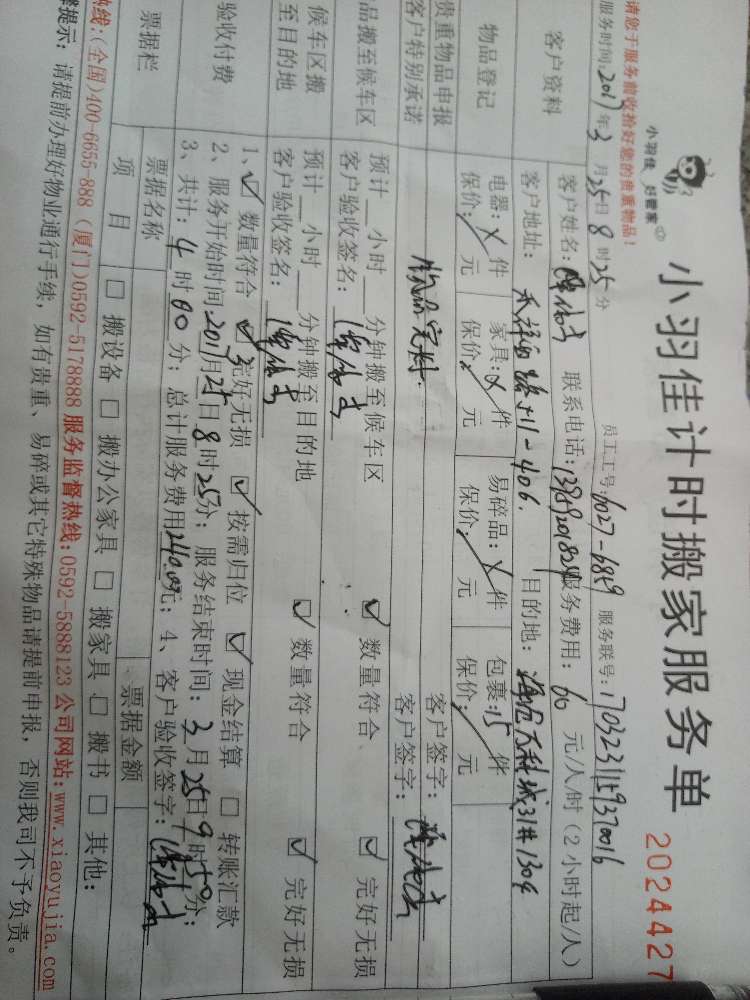 小羽佳 好管家
小羽佳计时搬家服务单
2024427
请您于服务前收拾好您的贵重物品!
员工工号:6027-6859 服务联号:1703231159370016
服务时间:2017年3月25日8时25分
客户资料
客户姓名: 联系电话: 服务费用:60元/人/时(2小时起/人)
客户地址: 511-406. 目的地: 万科城31#1304
物品登记
电器:件 家具:件 易碎品:件 包裹:15件
保价:元 保价:元 保价:元 保价:元
贵重物品申报
客户特别承诺
物品完好.
客户签字:
客户签字:
品搬至候车区
预计__小时__分钟搬至候车区 ☑ 数量符合 ☑ 完好无损
客户验收签名:
候车区搬
至目的地
预计__小时__分钟搬至目的地 ☑ 数量符合 ☑ 完好无损
客户验收签名:
验收付费
1、☑ 数量符合 ☑ 完好无损 ☑ 按需归位 ☑ 现金结算 □ 转账汇款
2、服务开始时间:3月25日8时25分;服务结束时间:3月25日9时50分;
3、共计:4时00分;总计服务费用240.00元;4、客户验收签字:
票据栏
票据名称 票据金额
项目 □ 搬设备 □ 搬办公家具 □ 搬家具 □ 搬书 □ 其他:
热线:(全国)400-6655-888(厦门)0592-5178888 服务监督热线:0592-5888123 公司网站:www.xiaoyujia.com
提示:请提前办理好物业通行手续,如有贵重、易碎或其它特殊物品请提前申报,否则我司不予负责。